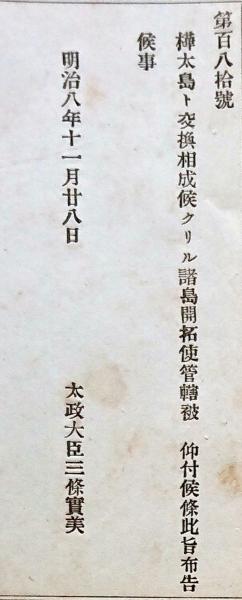 第百八拾號
樺太島ト交換相成候クリル諸島開拓使管轄被　仰付候條此旨布告
候事
明治八年十一月廿八日　太政大臣三條實美